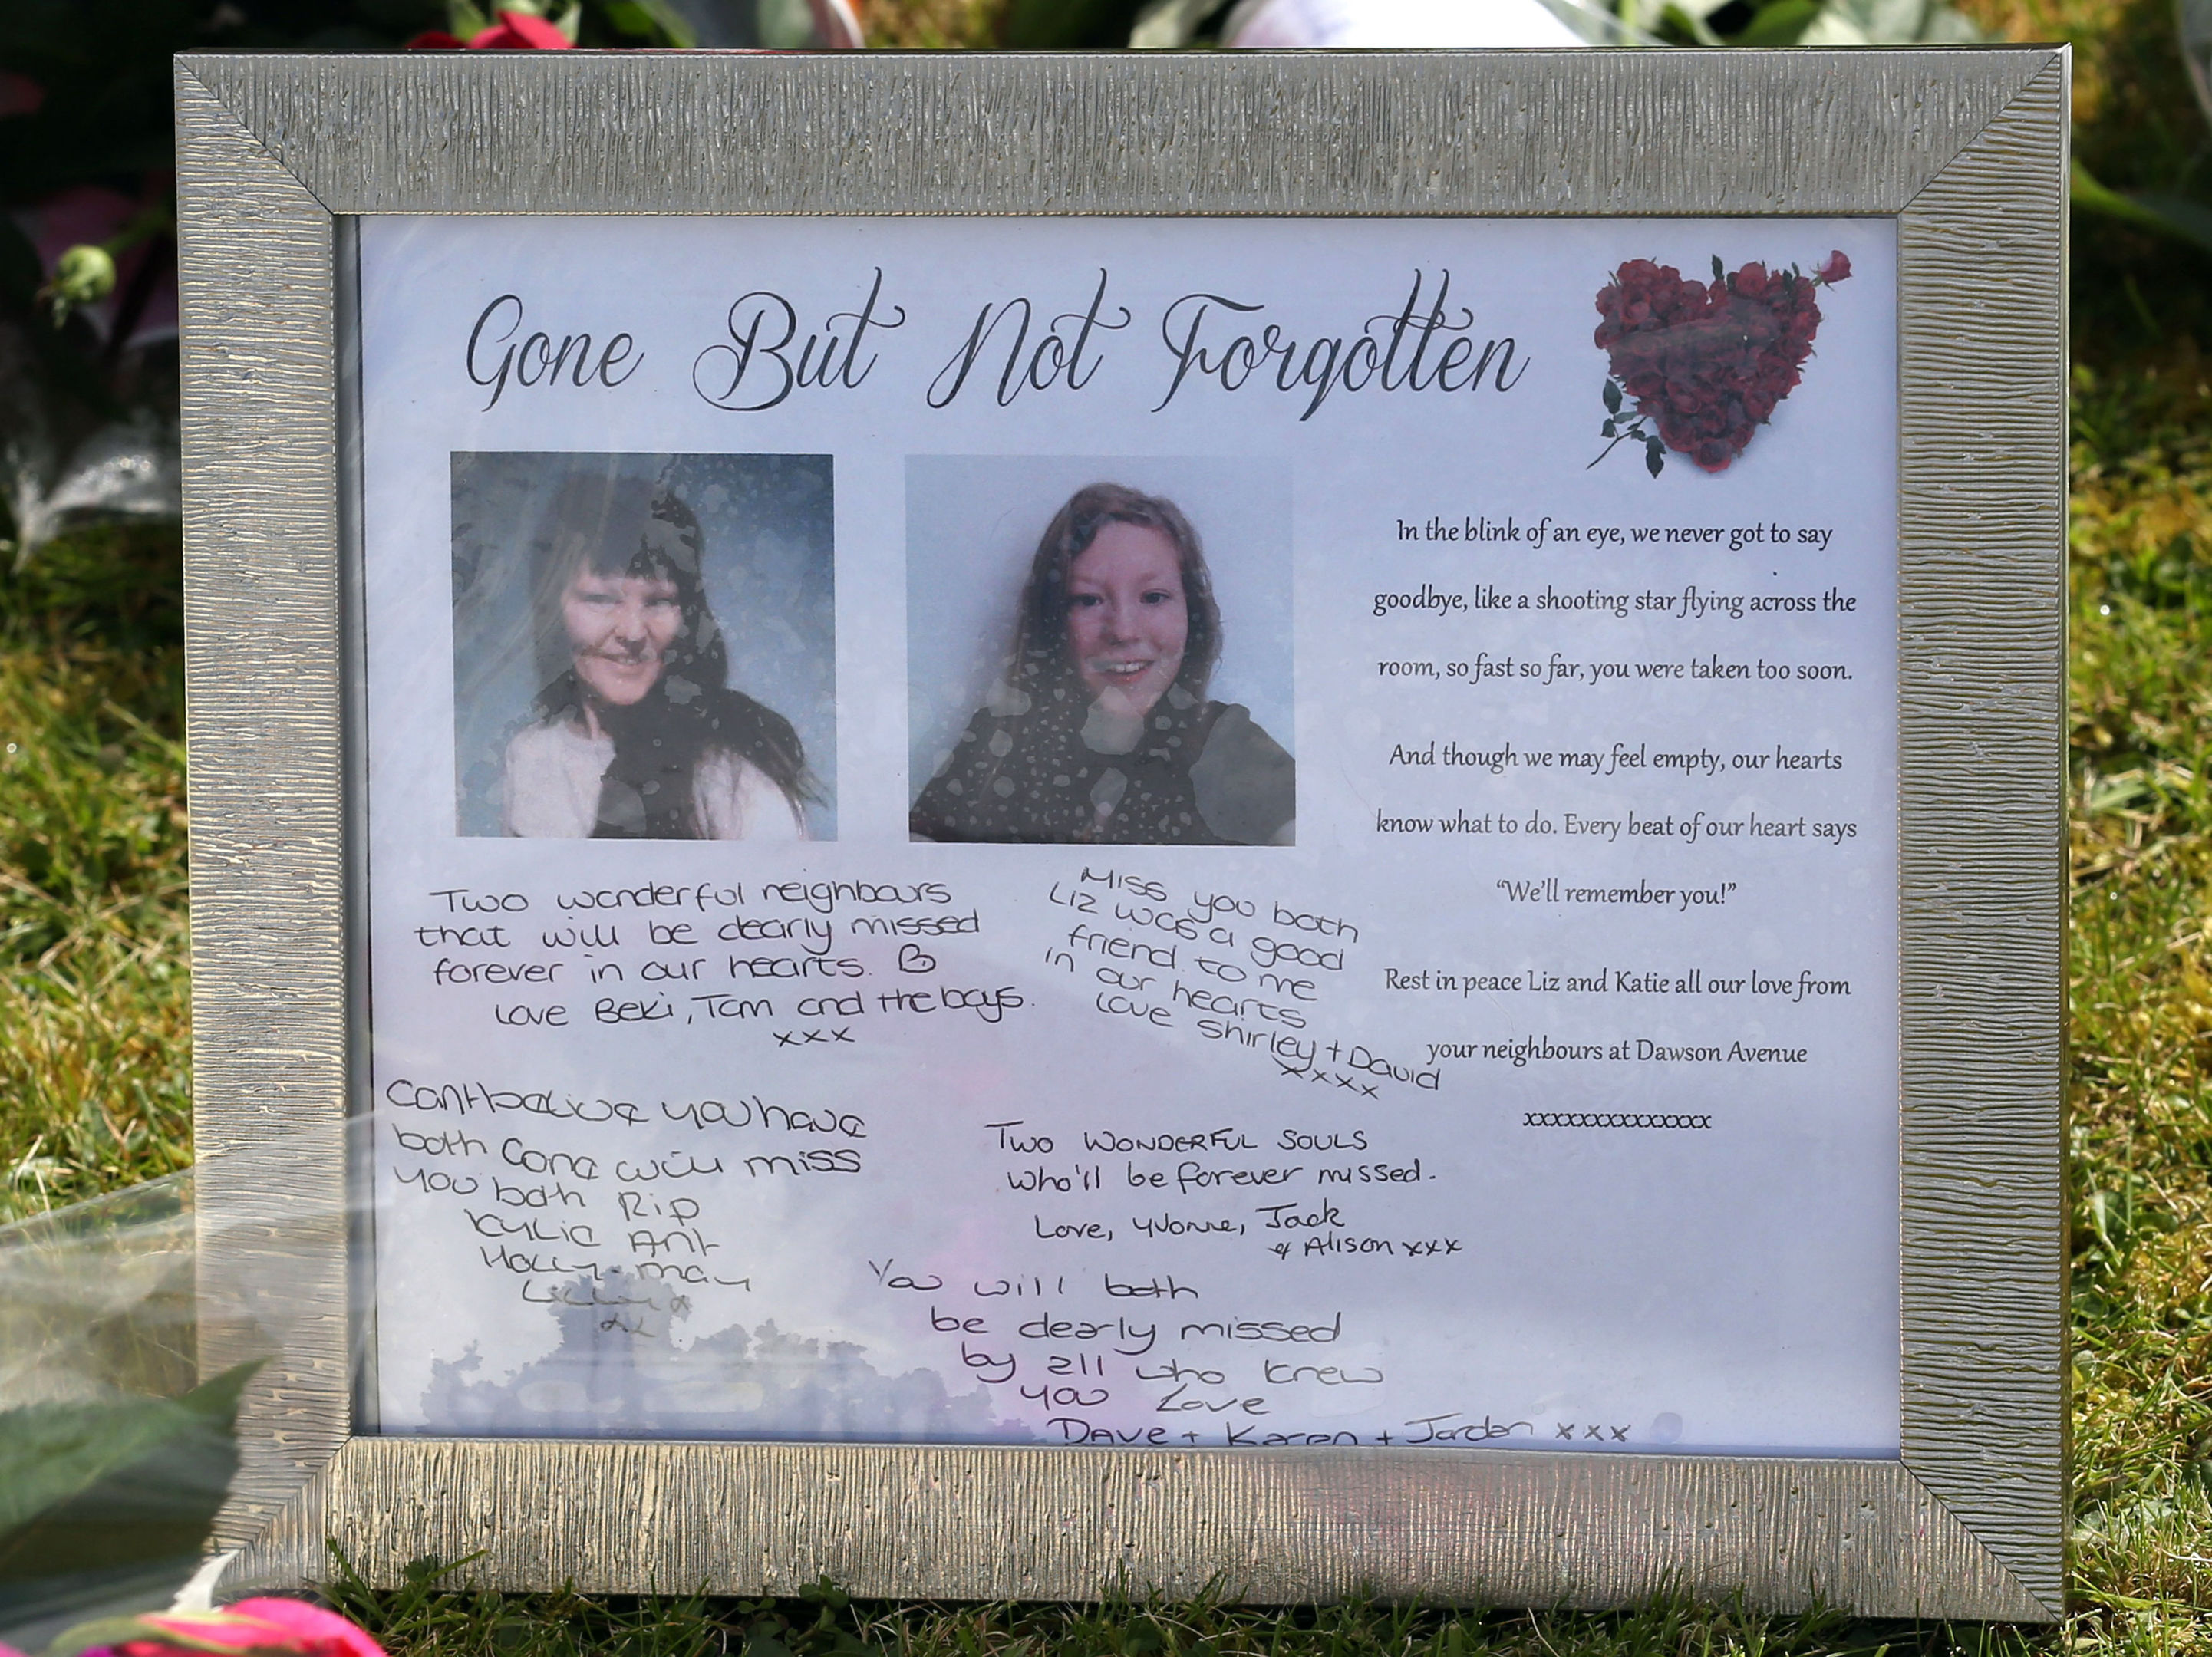 Gone But Not Forgotten
In the blink of an eye, we never got to say
goodbye, like a shooting star flying across the
room, so fast so far, you were taken too soon.
And though we may feel empty, our hearts
know what to do. Every beat of our heart says
“We’ll remember you!”
Rest in peace Liz and Katie all our love from
your neighbours at Dawson Avenue
xxxxxxxxxxxxxxx
Two wonderful neighbours
that will be dearly missed
forever in our hearts.
Love Beki, Tom and the boys.
xxx
Miss you both
Liz was a good
friend to me
in our hearts
Love Shirley + David
xxxx
Cant believe you have
both Gone will miss
you both Rip
Kylie Ant
Holly-may
Two WONDERFUL SOULS
who'll be forever missed.
Love, Yvonne, Jack
& Alison xxx
You will both
be dearly missed
by all who knew
you Love
Dave + Karen + Jordan xxx